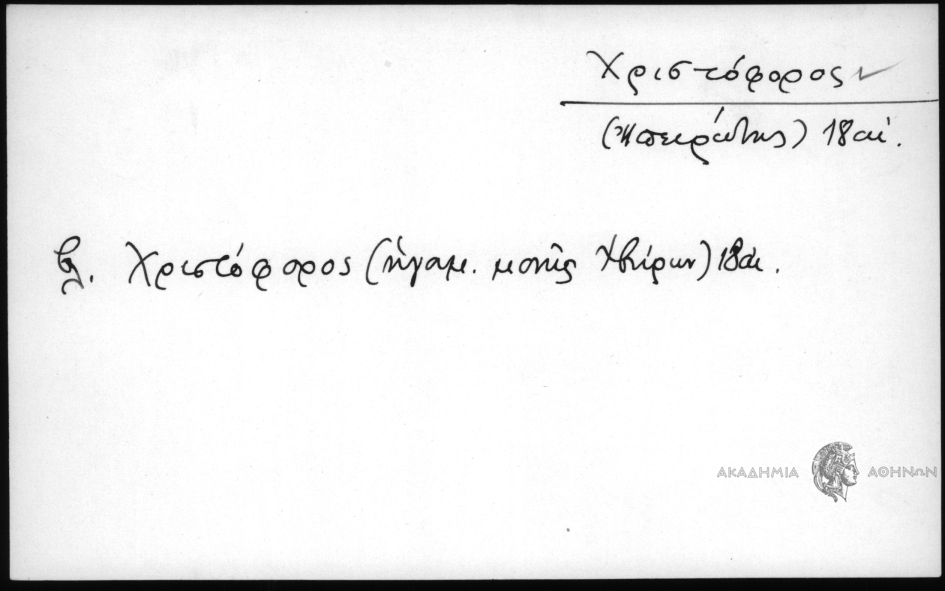 Χριστόφορος
(Ἠπειρώτης) 18 αἰ.
βλ. Χριστόφορος (ἡγουμ. μονῆς Ἰβήρων) 18 αἰ.
ΑΚΑΔΗΜΙΑ ΑΘΗΝΩΝ